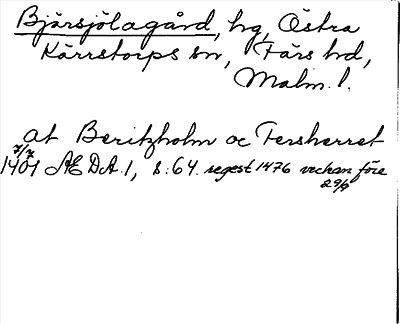 Bjärsjölagård, hg, Östra
Kärrstorps sn, Färs hd,
Malm. l.
at Beritzholm oc Fersherret
7/7
1401 ÆDA 1, s. 64. regest 1476 veckan före
29/9